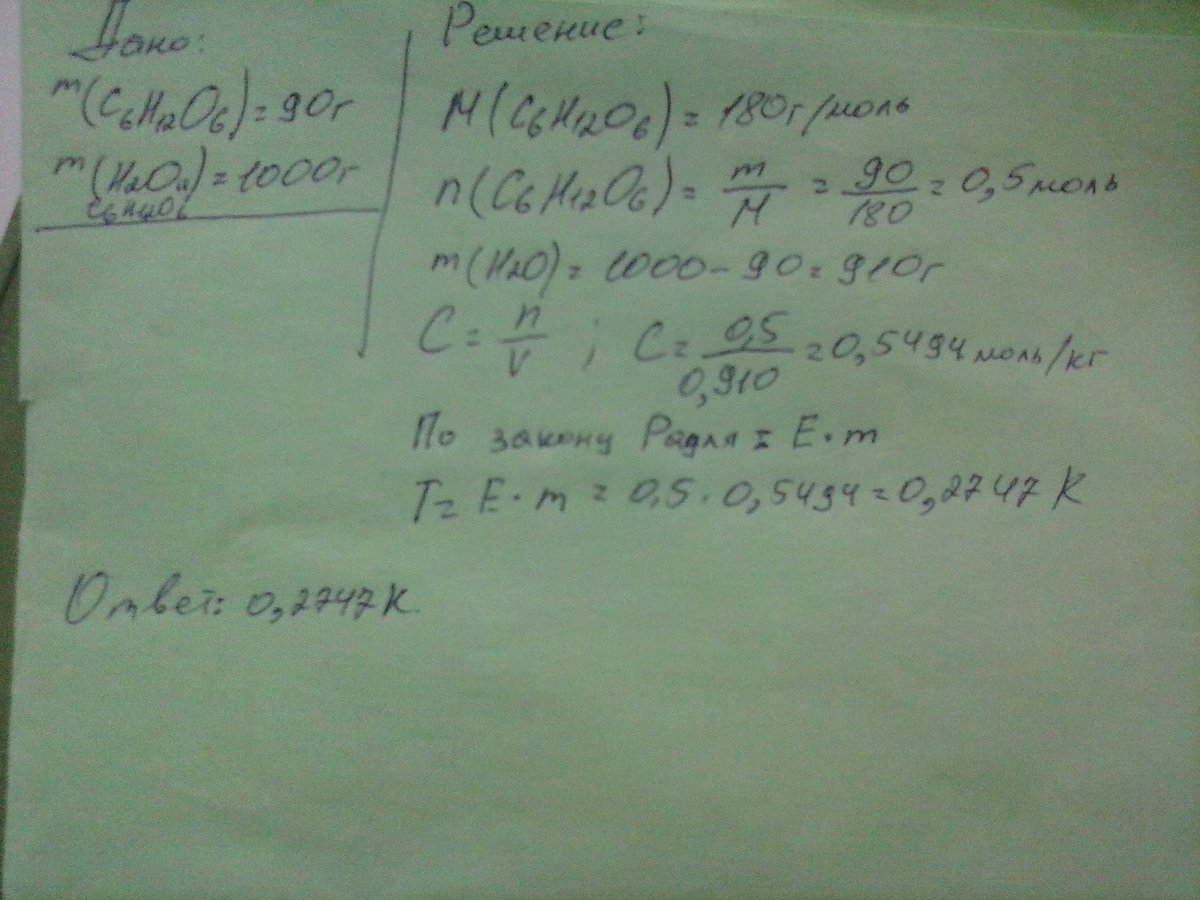 Дано:
m(C₆H₁₂O₆) = 90г
m(H₂O и C₆H₁₂O₆) = 1000г
Решение:
M(C₆H₁₂O₆) = 180г/моль
n(C₆H₁₂O₆) = m/M = 90/180 = 0,5 моль
m(H₂O) = 1000 - 90 = 910г
C = n/v ; C = 0,5/0,910 = 0,5494 моль/кг
По закону Рауля = E·m
T = E·m = 0,5·0,5494 = 0,2747 K
Ответ: 0,2747K